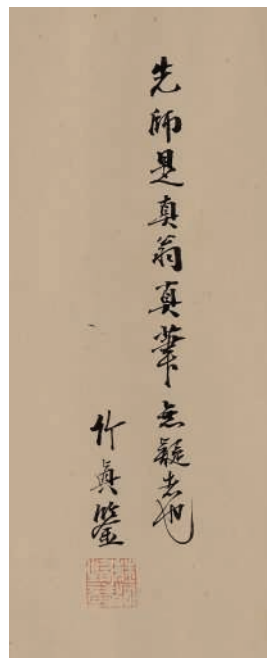 先師是真翁真筆無疑者也
竹眞鑒